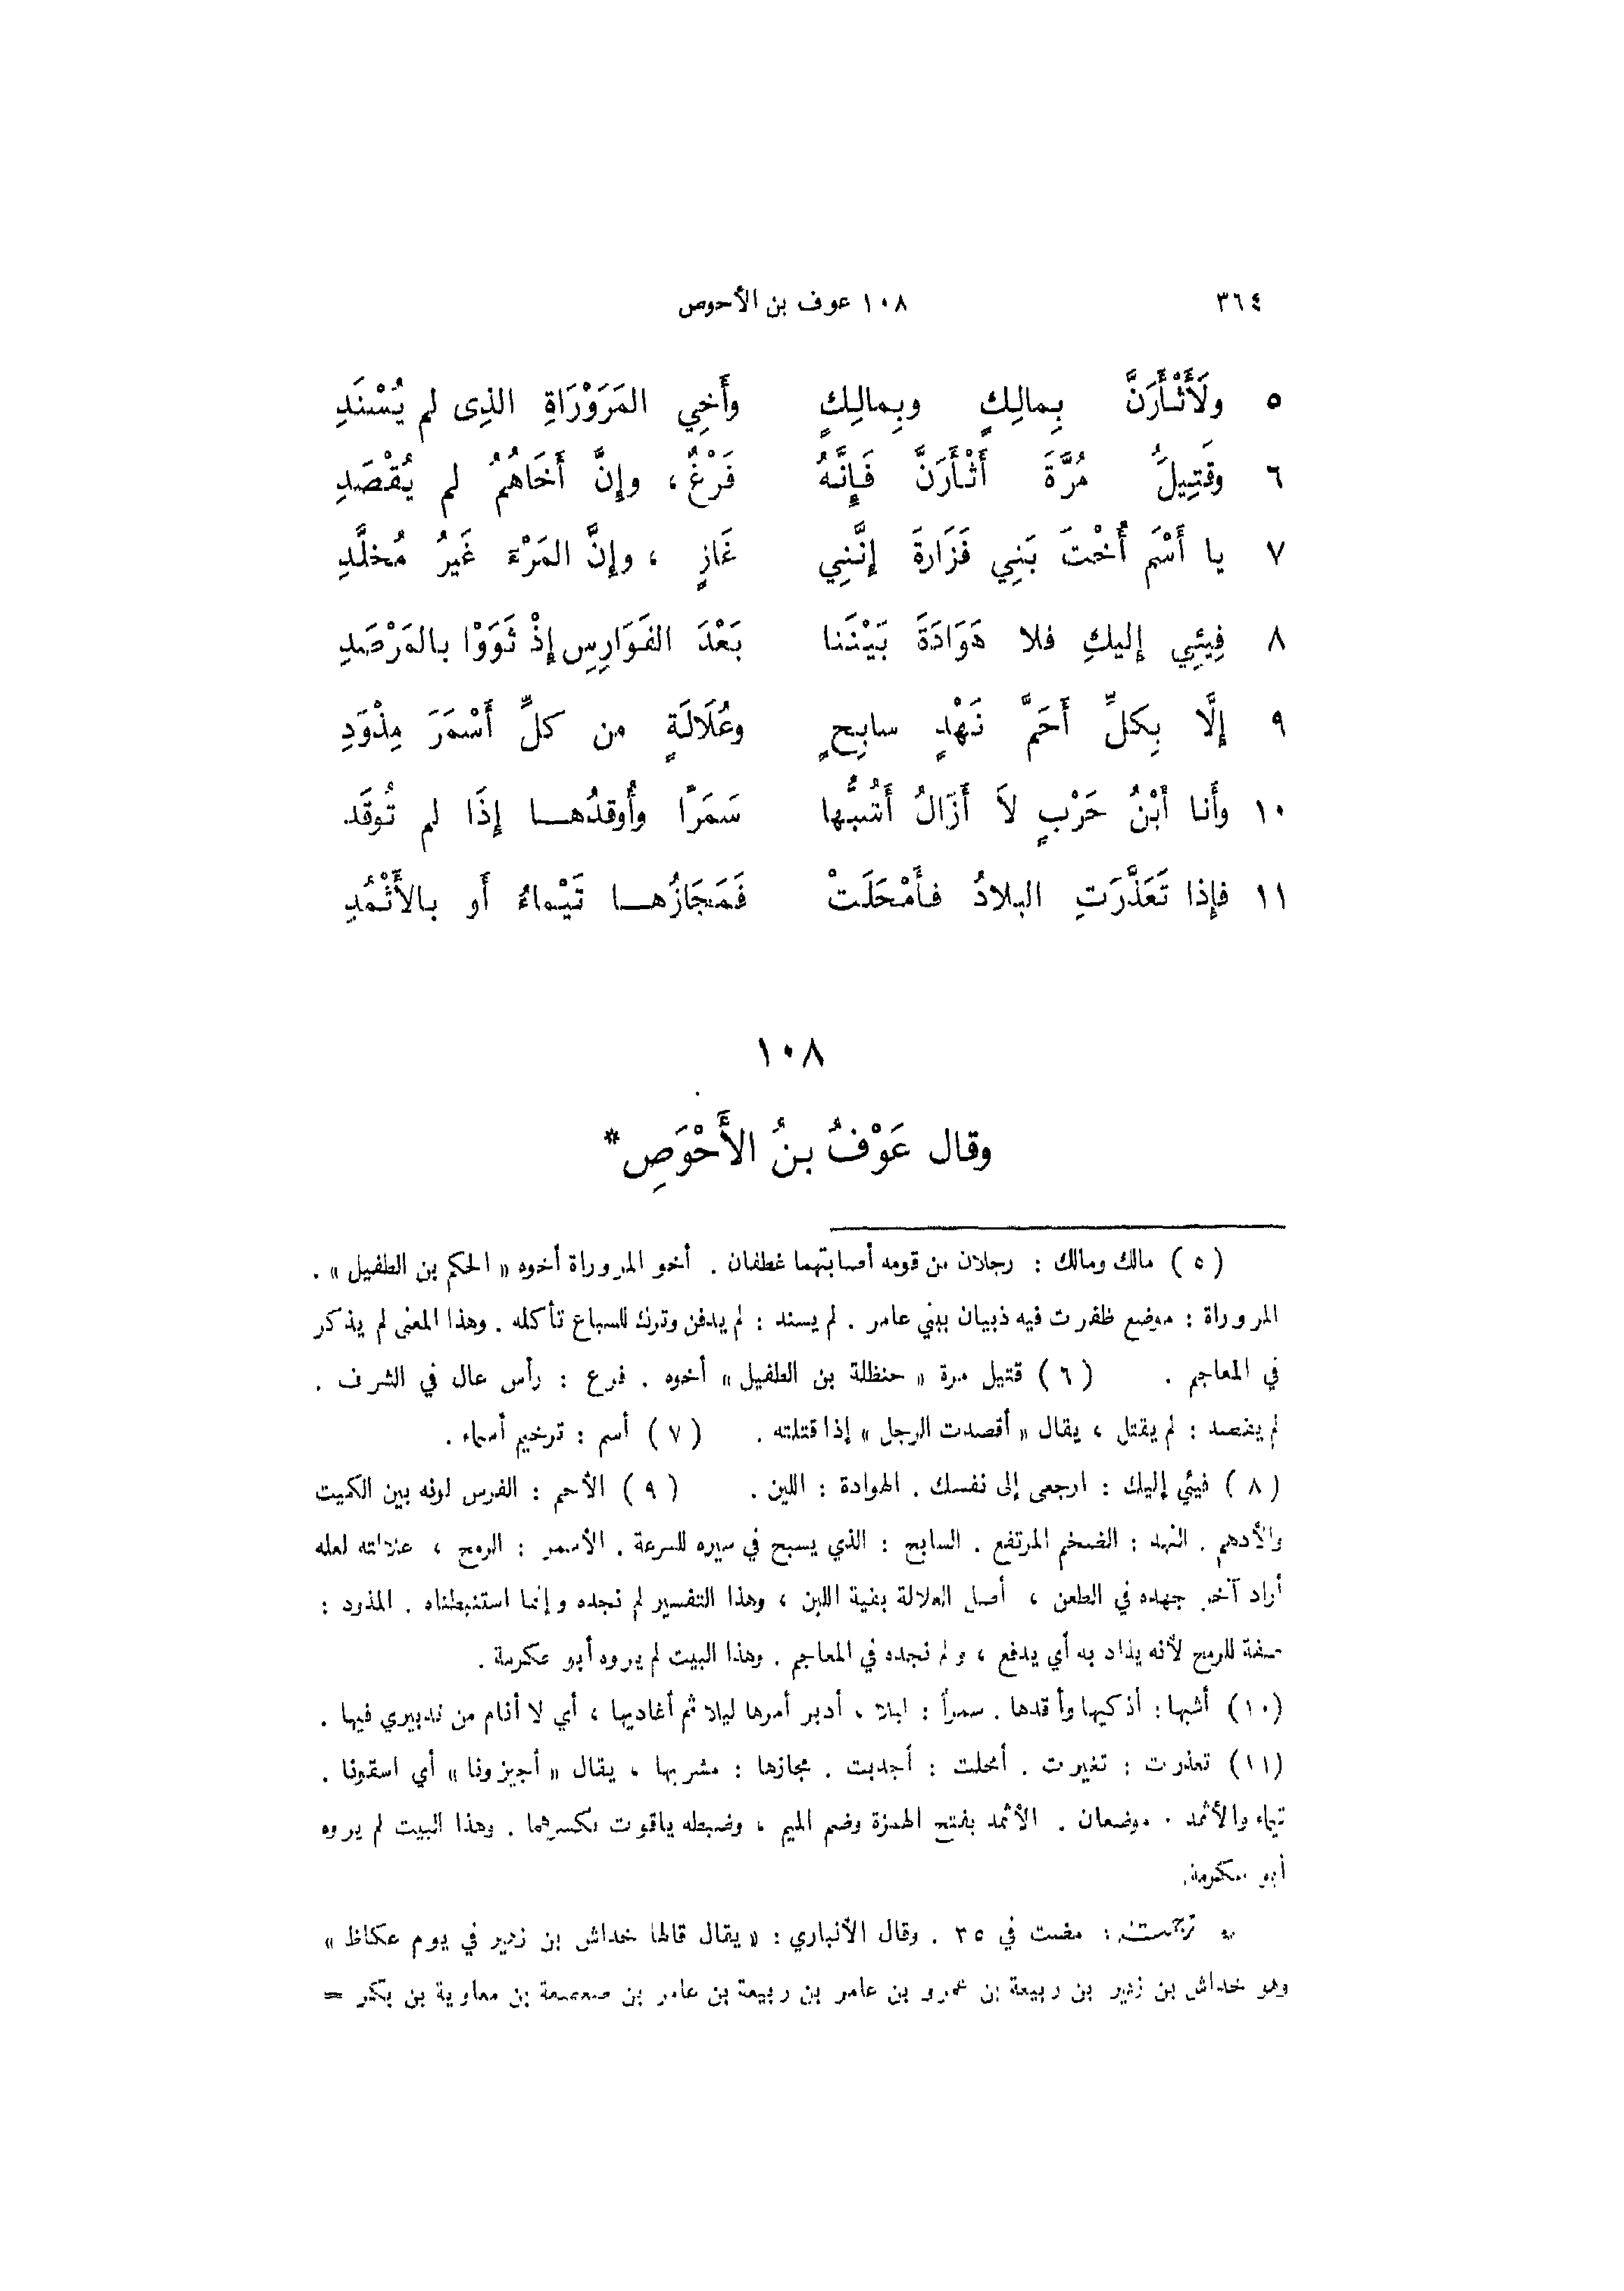 ٣٦٤ ١٠٨ عوف بن الأحوص
٥ ولَأَثْأَرَنَّ بِمالِكٍ وبِمالِكٍ وأَخِي المَرَوْرَاةِ الذِى لم يُسْنَدِ
٦ وقَتِيلَُ مُرَّةَ أَثْأَرَنَّ فَإِنَّهُ فَرْغٌ ، وإِنَّ أَخَاهُمُ لم يُقْصَدِ
٧ يا أَسْمَ أُخْتَ بَنِي فَزَارةَ إِنَّنِي غَازٍ ، وإِنَّ المَرْءَ غَيرُ مُخلَّدِ
٨ فِيئِي إِليكِ فلا هَوَادَةَ بَيْنَنا بَعْدَ الفَوَارِسِ إِذْ ثَوَوْا بالمَرْصَدِ
٩ إِلَّا بِكلِّ أَحَمَّ نَهْدٍ سابِحٍ وعُلَالَةٍ من كلِّ أَسْمَرَ مِذْوَدِ
١٠ وأَنا أبْنُ حَرْبٍ لاَ أَزَالُ أَشُبُّها سَمَرًا وأُوقدُهـا إِذَا لم تُوقَد
١١ فإِذا تَعَذَّرَتِ البلادُ فأَمْحَلَتْ فَمَجَازُهـا تَيْماءُ أَو بالأَثْمُدِ
١٠٨
وقال عَوْفُ بنُ الأَحْوَصِ*
( ٥ ) مالك ومالك : رجلان من قومه أصابتهما غطفان . أخو المروراة أخوه « الحكم بن الطفيل » .
المروراة : موضع ظفرت فيه ذبيان ببني عامر . لم يسند : لم يدفن وترك للسباع تأكله . وهذا المعنى لم يذكر
في المعاجم . ( ٦ ) قتيل مرة « حنظلة بن الطفيل » أخوه . فرع : رأس عال في الشرف .
لم يقصد : لم يقتل ، يقال « أقصدت الرجل » إذا قتلته . ( ٧ ) أسم : ترخيم أسماء .
( ٨ ) فيئي إليك : ارجعى إلى نفسك . الهوادة : اللين . ( ٩ ) الأحم : الفرس لونه بين الكميت
والأدهم . النهد : الضخم المرتفع . السابح : الذي يسبح في سيره للسرعة . الأسمر : الرمح ، علالته لعله
أراد آخر جهده في الطعن ، أصل العلالة بقية اللبن ، وهذا التفسير لم نجده وإنما استنبطناه . المذود :
صفة للرمح لأنه يذاد به أي يدفع ، ولم نجده في المعاجم . وهذا البيت لم يروه أبو عكرمة .
(١٠) أشبها : أذكيها وأقدها . سمراً : ليلا ، أدبر أمرها ليلا ثم أغاديها ، أي لا أنام من تدبيري فيها .
(١١) تعذرت : تغيرت . أمحلت : أجدبت . مجازها : مشربها ، يقال « أجيزونا » أي اسقونا .
تيماء والأثمد : موضعان . الأثمد بفتح الهمزة وضم الميم ، وضبطه ياقوت بكسرهما . وهذا البيت لم يروه
أبو عكرمة.
* ترجمته : مضت في ٣٥ . وقال الأنباري : « يقال قالها خداش بن زهير في يوم عكاظ »
وهو خداش بن زهير بن ربيعة بن عمرو بن عامر بن ربيعة بن عامر بن صعصعة بن معاوية بن بكر =